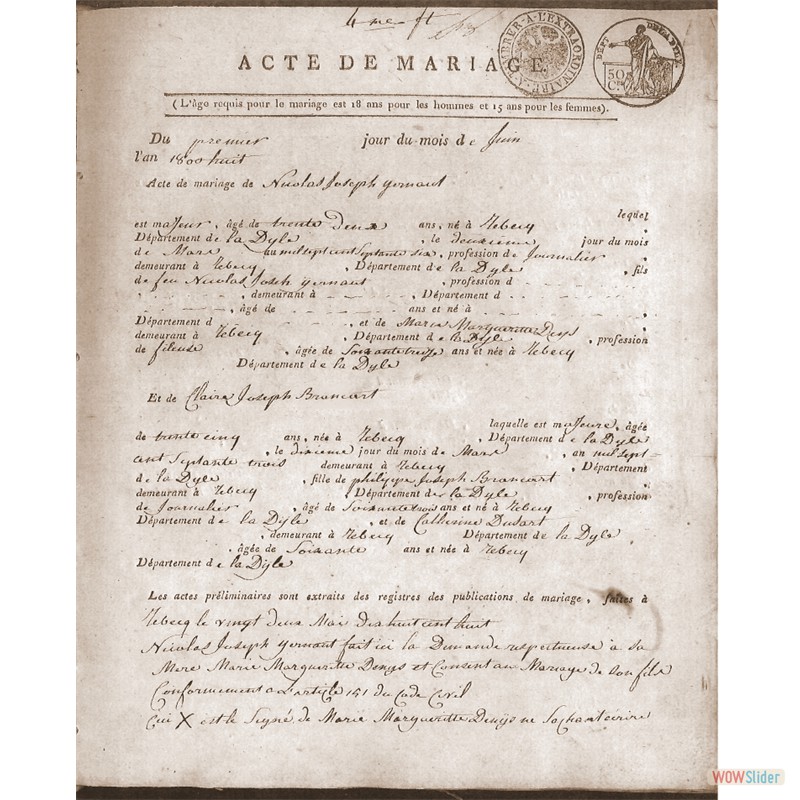 4 me ft
TIMBRER A L'EXTRAORDINAIRE
DÉPT. DE LA DYLE
50 C.
ACTE DE MARIAGE.
(L'âge requis pour le mariage est 18 ans pour les hommes et 15 ans pour les femmes).
Du premier jour du mois de Juin
l'an 1800 huit
Acte de mariage de Nicolas Joseph Yernaut
lequel
est majeur, âgé de trente deux ans, né à Rebecq,
Département de la Dyle, le deuxieme jour du mois
de Mars au mil sept cent Septante six, profession de Journalier,
demeurant à Rebecq, Département de la Dyle, fils
de feu Nicolas Joseph Yernaut, profession d
, demeurant à, Département d
, âgé de ans et né à,
Département d, et de Marie Marguerite Deys
demeurant à Rebecq, Département de la Dyle, profession
de fileuse, âgée de Soixante treize ans et née à Rebecq
Département de la Dyle
Et de Claire Joseph Brancart
laquelle est majeure, âgée
de trente cinq ans, née à Rebecq, Département de la Dyle
, le dixieme jour du mois de Mars, an mil sept-
cent Septante trois demeurant à Rebecq, Département
de la Dyle, fille de philippe Joseph Brancart
demeurant à Rebecq, Département de la Dyle, profession
de Journalier, âgé de Soixante ans et né à Rebecq
Département de la Dyle, et de Catherine Dusart
, demeurant à Rebecq Département de la Dyle
, âgée de Soixante ans et née à Rebecq
Département de la Dyle
Les actes préliminaires sont extraits des registres des publications de mariage, faites à
Rebecq le vingt deux Mai Dix huit cent huit
Nicolas Joseph Yernaut fait ici la Demande respectueuse a sa
Mere Marie Marguerite Denys et Consent au Mariage de son fils
Conformement a L'article 151 du Code Civil
Ceci X est le Signé de Marie Margueritte Denijs ne Sachant écrire
WOWSlider